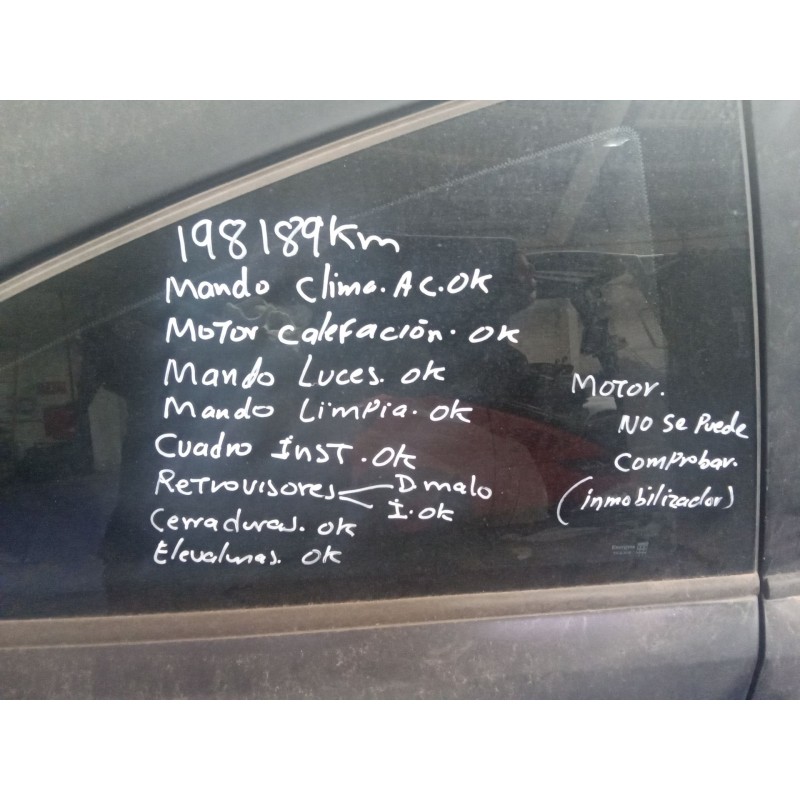 198189Km
Mando Clima. AC. OK
Motor calefación. OK
Mando Luces. OK
Mando Limpia. OK
Cuadro İnst. OK
Retrovisores D malo
İ. OK
Cerraduras. OK
Elevalunas. OK
Motor.
No se Puede
comProbar.
(inmobilizador)